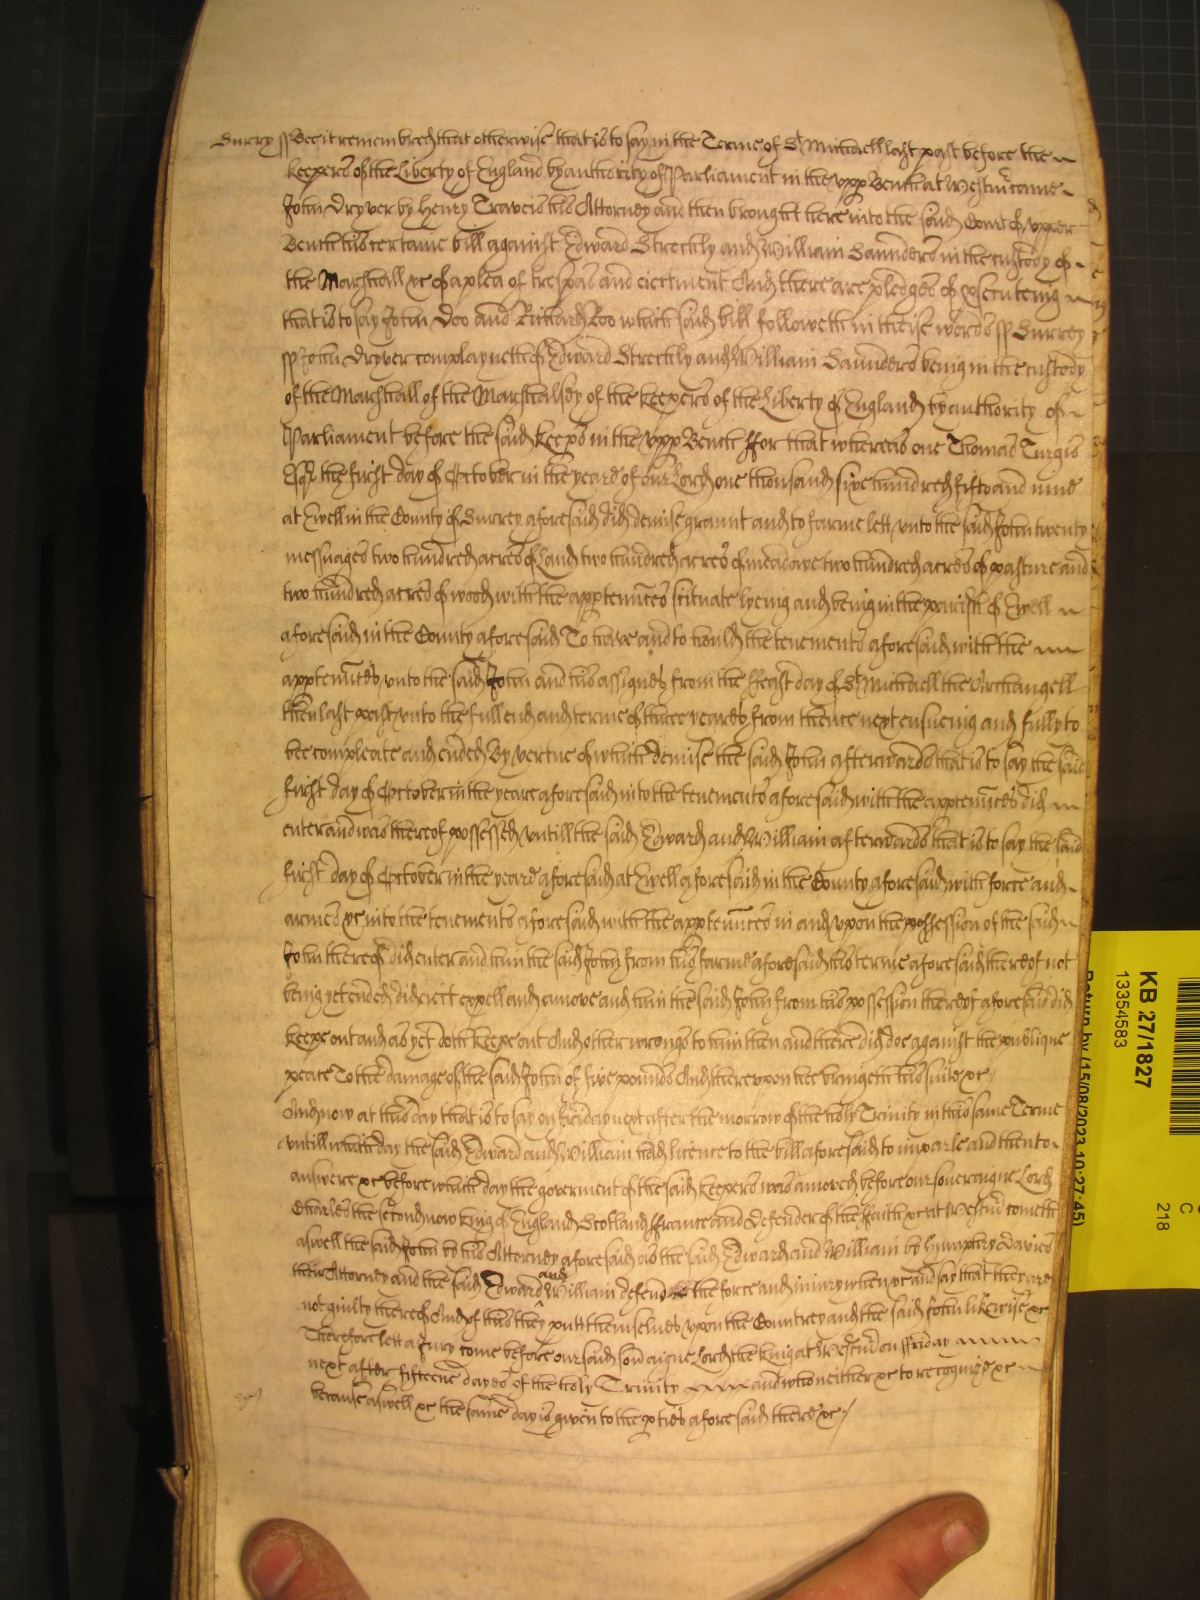 Surry ss Bee it remembred that otherwise that is to say in the Terme of St Michaell last past before the
keepers of the Liberty of England by authority of Parliament in the upp Bench at Westmr came
John Dryver by Henry Travers his Attorney and then brought here into the said Court of upper
Bench his certaine bill against Edward Streckly and William Saunders in the custody of
the Marshall &c of a plea of trespas and eiectment And there are pledges of prosecuteing
that is to say John Doo and Richard Roo which said bill followeth in theise words ss Surrey
ss John Dryver complayneth of Edward Streckly and William Saunders being in the custody
of the Marshall of the Marshalsey of the keepers of the Liberty of England by authority of
Parliament before the said keeps in the upp Bench ffor that whereas one Thomas Turgis
Esqr the first day of October in the yeare of our Lord one thousand sixe hundred fifty and nine
at Ewell in the County of Surrey aforesaid did demise graunt and to farme lett unto the said John twenty
messuages two hundred acres of Land two hundred acres of meadowe two hundred acres of pasture and
two hundred acres of wood with the apptennces scituate lyeing and being in the parish of Ewell
aforesaid in the County aforesaid To have and to hould the tenements aforesaid with the
apptennces unto the said John and his assignes from the ffeast day of St Michaell the Archangell
then last past unto the full end and terme of three yeares from thence next ensueing and fully to
bee compleate and ended By vertue of which demise the said John afterwards that is to say the said
first day of October in the yeare aforesaid into the tenements aforesaid with the apptennces did
enter and was thereof possessed untill the said Edward and William afterwards that is to say the said
first day of October in the yeare aforesaid at Ewell aforesaid in the County aforesaid with force and
armes &c into the tenements aforesaid with the apptennces in and upon the possession of the said
John thereof did enter and him the said John from his farme aforesaid his terme aforesaid thereof not
being yet ended did eiect expell and amove and him the said John from his possession thereof aforesaid did
keepe out and as yet doth keepe out And other wrongs to him then and there did doe against the publique
peace To the damage of the said John of five pounds And thereupon hee bringeth his suite &c
And now at this day that is to say on ffriday next after the morrow of the holy Trinity in this same Terme
untill which day the said Edward and William had licence to the bill aforesaid to imparle and then to
answere &c before which day the goverment of the said keepers was amoved before our soveraigne Lord
Charles the second now king of England Scotland ffrance and defender of the ffaith &c at Westmr cometh
aswell the said John by his Attorney aforesaid as the said Edward and William by Humphry Davies
their Attorney and the said Edward and William defend the force and iniury when &c and say that they are
not guilty thereof And of this they putt themselves upon the Countrey and the said John likewise &c
Therefore lett a Jury come before our said sovaigne Lord the king at Westmr on ffriday
next after fifteene dayes of the holy Trinity xxxx and who neither &c to recognize &c
because aswell &c the same day is given to the pties aforesaid there &c
KB 27/1827
13354583
218
C
Return by (15/08/2023 10:27:45)